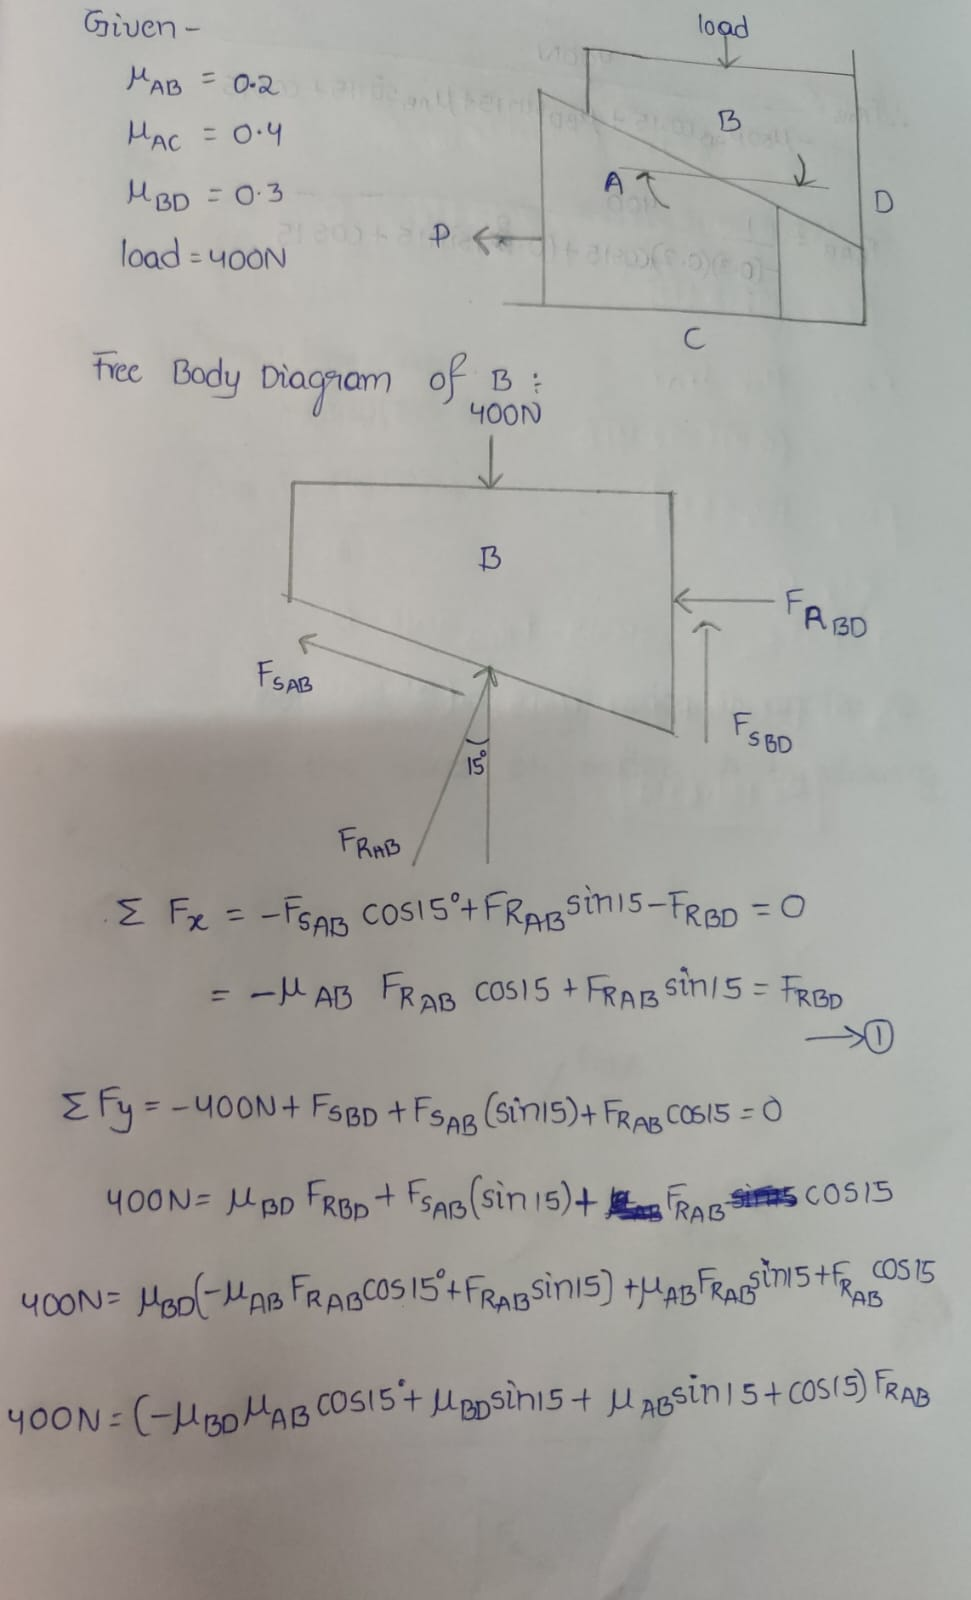 Given -
μAB = 0.2
μAC = 0.4
μBD = 0.3
load = 400N
load
B
A
D
P
C
Free Body Diagram of B :
400N
B
FRBD
FSAB
FSBD
15°
FRAB
Σ Fx = -FSAB cos15° + FRAB sin15 - FRBD = 0
= -μAB FRAB cos15 + FRAB sin15 = FRBD
→ ①
Σ Fy = -400N + FSBD + FSAB (sin15) + FRAB cos15 = 0
400N = μBD FRBD + FSAB (sin15) + FRAB cos15
400N = μBD(-μAB FRAB cos15° + FRAB sin15) + μAB FRAB sin15 + FRAB cos15
400N = (-μBD μAB cos15° + μBD sin15 + μAB sin15 + cos15) FRAB